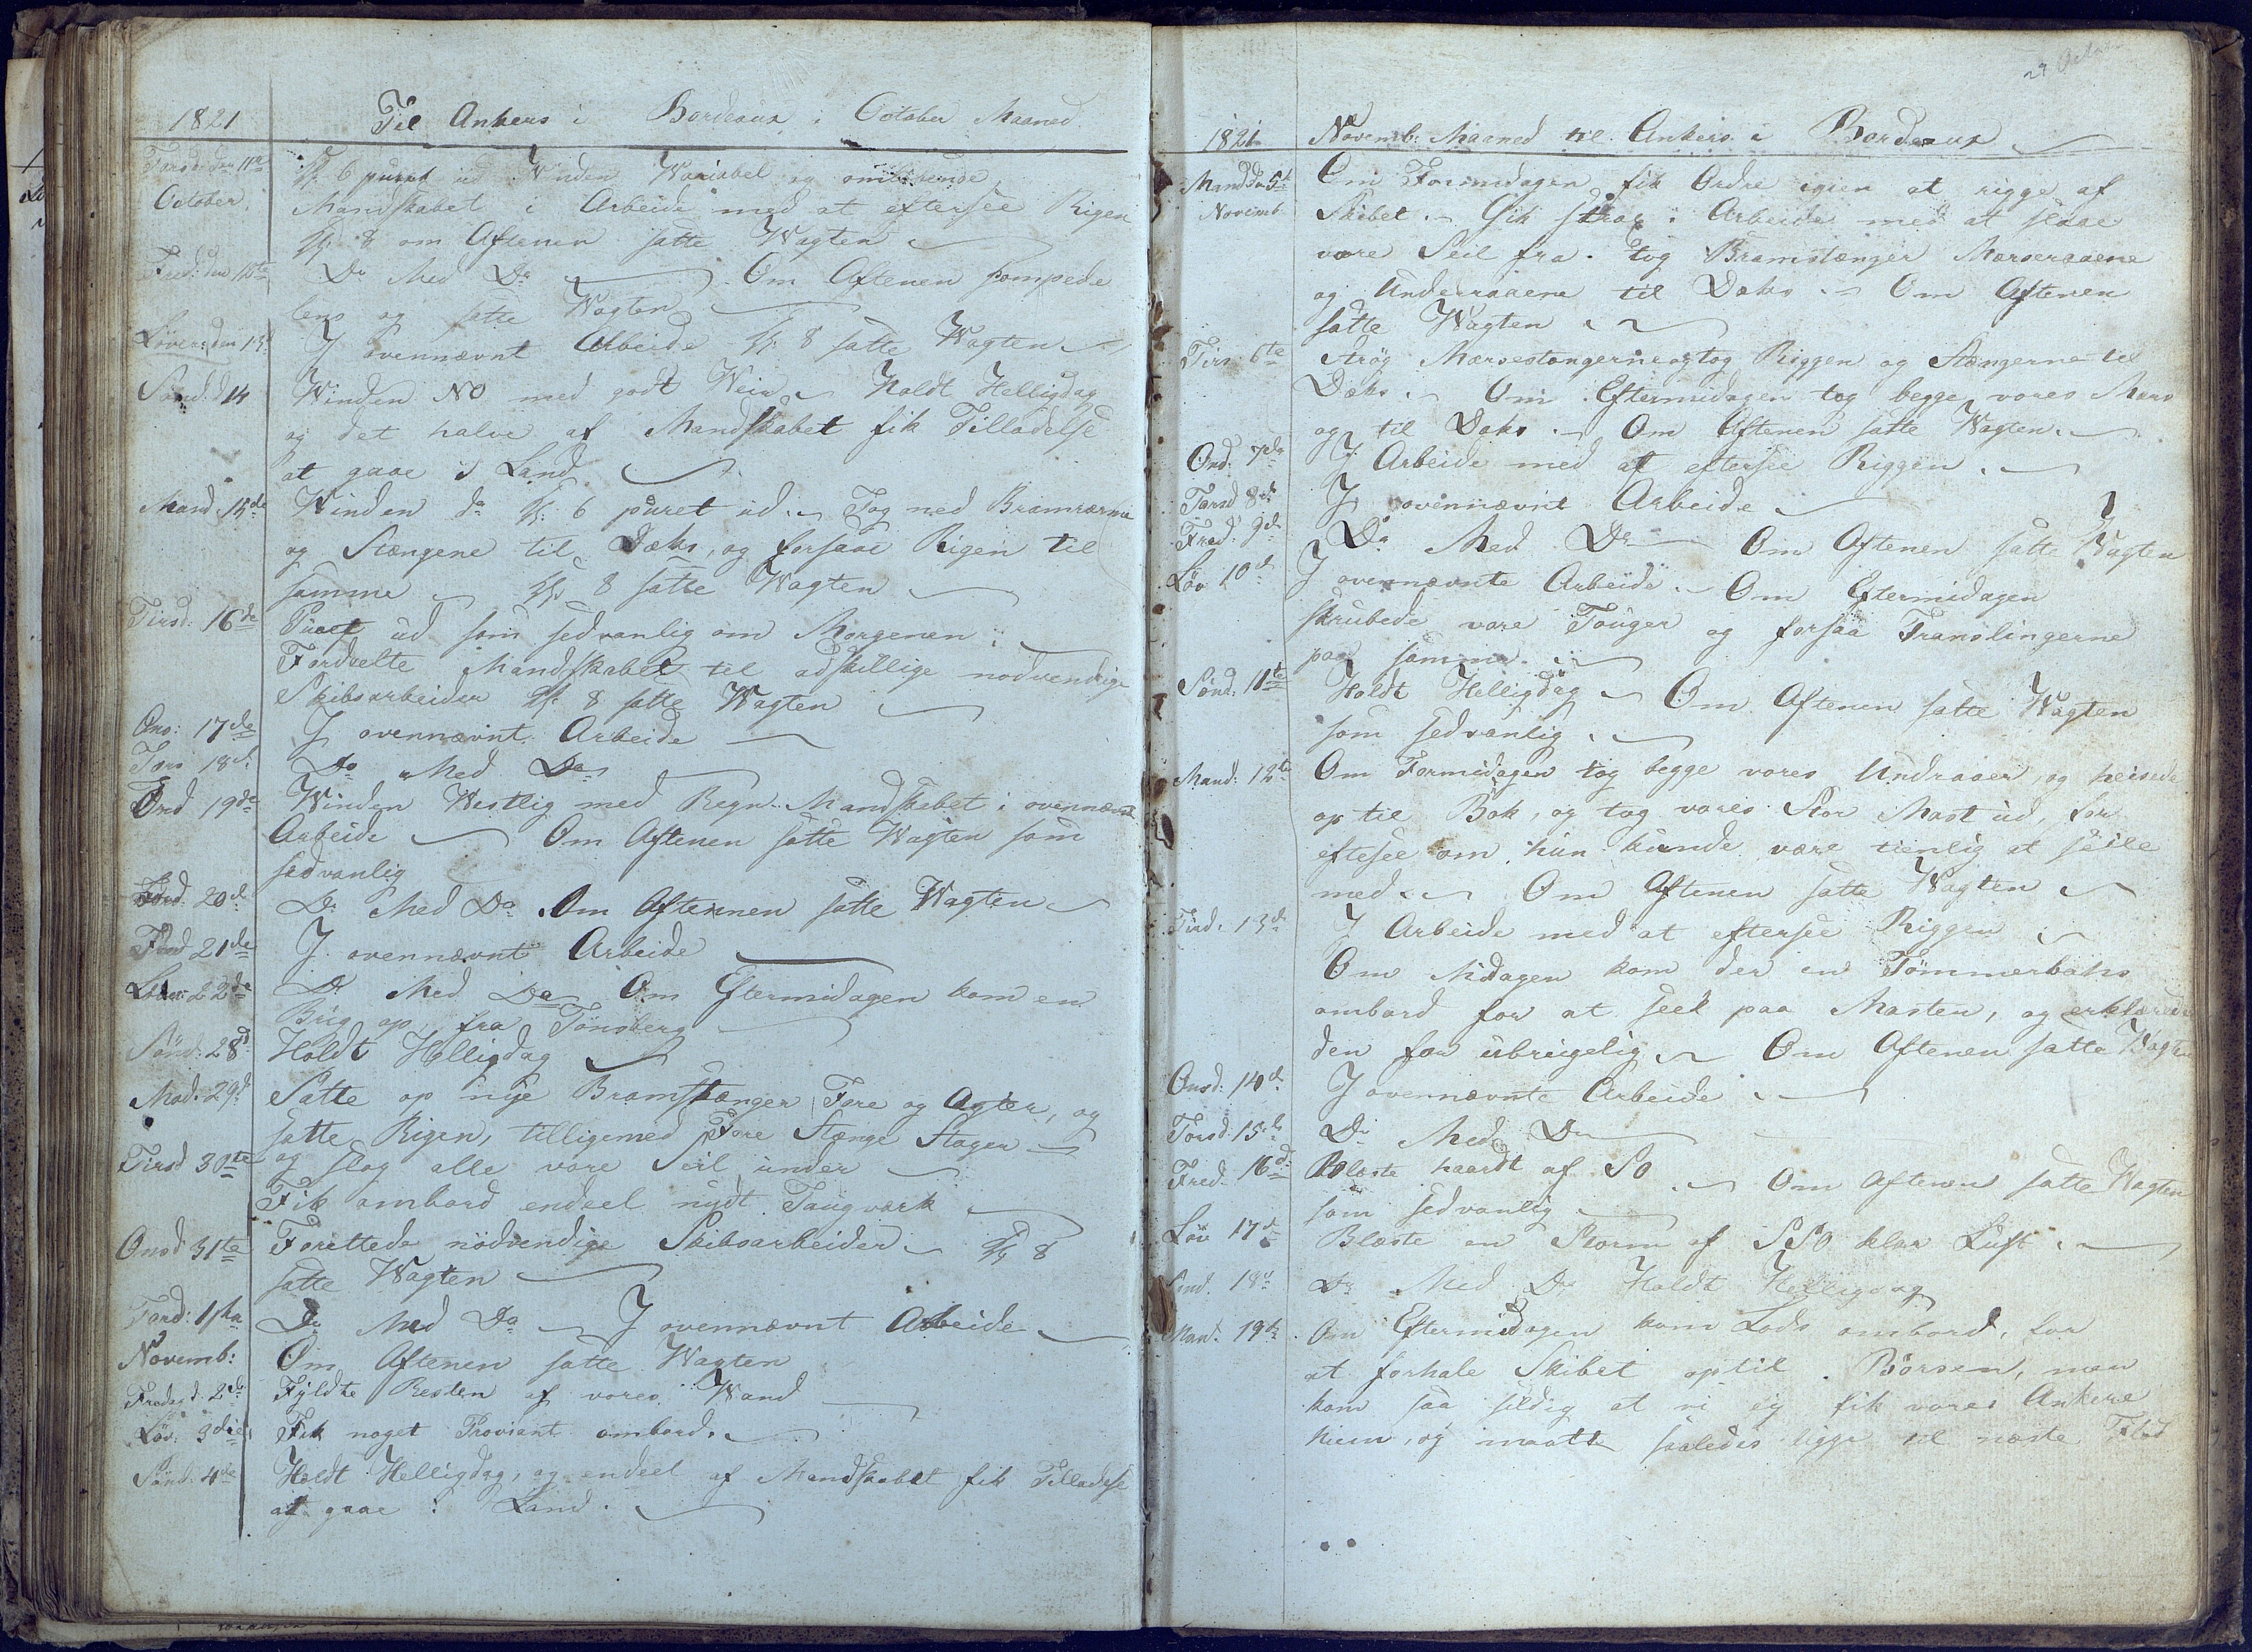 1821 Til Ankers i Bordeaux i October Maaned
Torsd: den 11te Kl: 6 puret ud Winden Variabel og omløbende,
October. Mandskabet i Arbeide med at eftersee Rigen
Kl: 8 om Aftenen satte Wagten
Fred: den 12te Do Med Do Om Aftenen pompede
lens og satte Wagten
Løver: den 13de I ovennævnt Arbeide Kl: 8 satte Wagten
Sønd: d 14 Winden NO med godt Weir Holdt Helligdag
og det halve af Mandskabet fik Tilladelse
at gaae i Land
Mand 15de Winden do Kl: 6 puret ud. Tog ned Bramræerne
og Stængene til Dæks, og forsaae Rigen til
samme Kl: 8 satte Wagten
Tirsd: 16de Puret ud som sedvanlig om Morgenen
Fordeelte Mandskabet til adskillige nødvendige
Skibsarbeider Kl: 8 satte Wagten
Ons: 17de I ovennævnt Arbeide
Tors 18d Do Med Do
Ond 19de Winden Westlig med Regn. Mandskabet i ovennævnt
Arbeide Om Aftenen satte Wagten som
sedvanlig
20d Do Med Do. Om Aftennen satte Wagten
Fred 21de I ovennævnt Arbeide
Løver: 22de Do Med Do Om Eftermidagen kom en
Brig op, fra Tønsberg
Sønd: 28d Holdt Helligdag
Mad: 29d Satte op nye Bramstænger Fore og Agter, og
satte Rigen, tilligemed Fore Stænge Stagen
Tirsd 30te og slog alle vore Seil under
Fik ombord endeel nydt Taugværk
Onsd 31te Forettede nødvendige Skibsarbeider Kl 8
satte Wagten
Torsd: 1ste Do Med Do I ovennævnt Arbeide
Novemb: Om Aftenen satte Wagten
Fredag d. 2de Fyldte Resten af vores Wand
Løv: 3die Fik noget Proviant ombord.
Sønd: 4de Holdt Helligdag, og endeel af Mandskabet fik Tilladelse
at gaae i Land.
29
1821 Novemb: Maaned til Ankers i Bordeaux
Mand d 5te Om Formidagen fik Ordre igien at rigge af
Novemb Skibet. Gik strax i Arbeide med at slaae
vore Seil fra. tog Bramstænger Mærseraaene
og Underraaene til Dæks. Om Aftenen
satte Wagten
Tirs: 6te Strøg Mærsestangerne og tog Riggen og Stængerne til
Dæks. Om Eftermidagen tog begge vores Mærs
og til Dæks. Om Aftenen satte Wagten.
Ond: 7de I Arbeide med at eftersee Riggen.
Torsd 8de I ovennævnt Arbeide
Fred: 9de Do Med Do Om Aftenen satte Wagten
Løv 10d I ovennævnte Arbeide. Om Eftermidagen
skrubede vore Touger og forsaa Franslingerne
paa samme.
Sønd: 11te Holdt Helligdag Om Aftenen satte Wagten
som sedvanlig.
Mand: 12te Om Formidagen tog begge vores Undraaer, og heisede
op til Bok, og tog vores Stor Mast ud, for
eftesee om hun kunde være tienlig at seile
med. Om Aftenen satte Wagten
Tird: 13de I Arbeide med at eftersee Riggen
Om Midagen kom der en Tømmerbaks
ombord for at seek paa Masten, og erklærede
den for ubrugelig Om Aftenen satte Wagten
Onsd: 14d I ovennævnte Arbeide.
Torsd: 15de Do Med Do
Fred: 16d Blæste haardt af SO Om Aftenen satte Wagten
som sedvanlig
Løv 17d Blæste en Storm af SSO klar Luft.
Sønd. 18d Do Med Do Holdt Helligdag
Man: 19de Om Eftermidagen kom Lods ombord, for
at forhale Skibet optil Børsen, men
kom saa sildig at vi ej fik vores Ankere
hiem, og maatte saaledes ligge til næste Flod